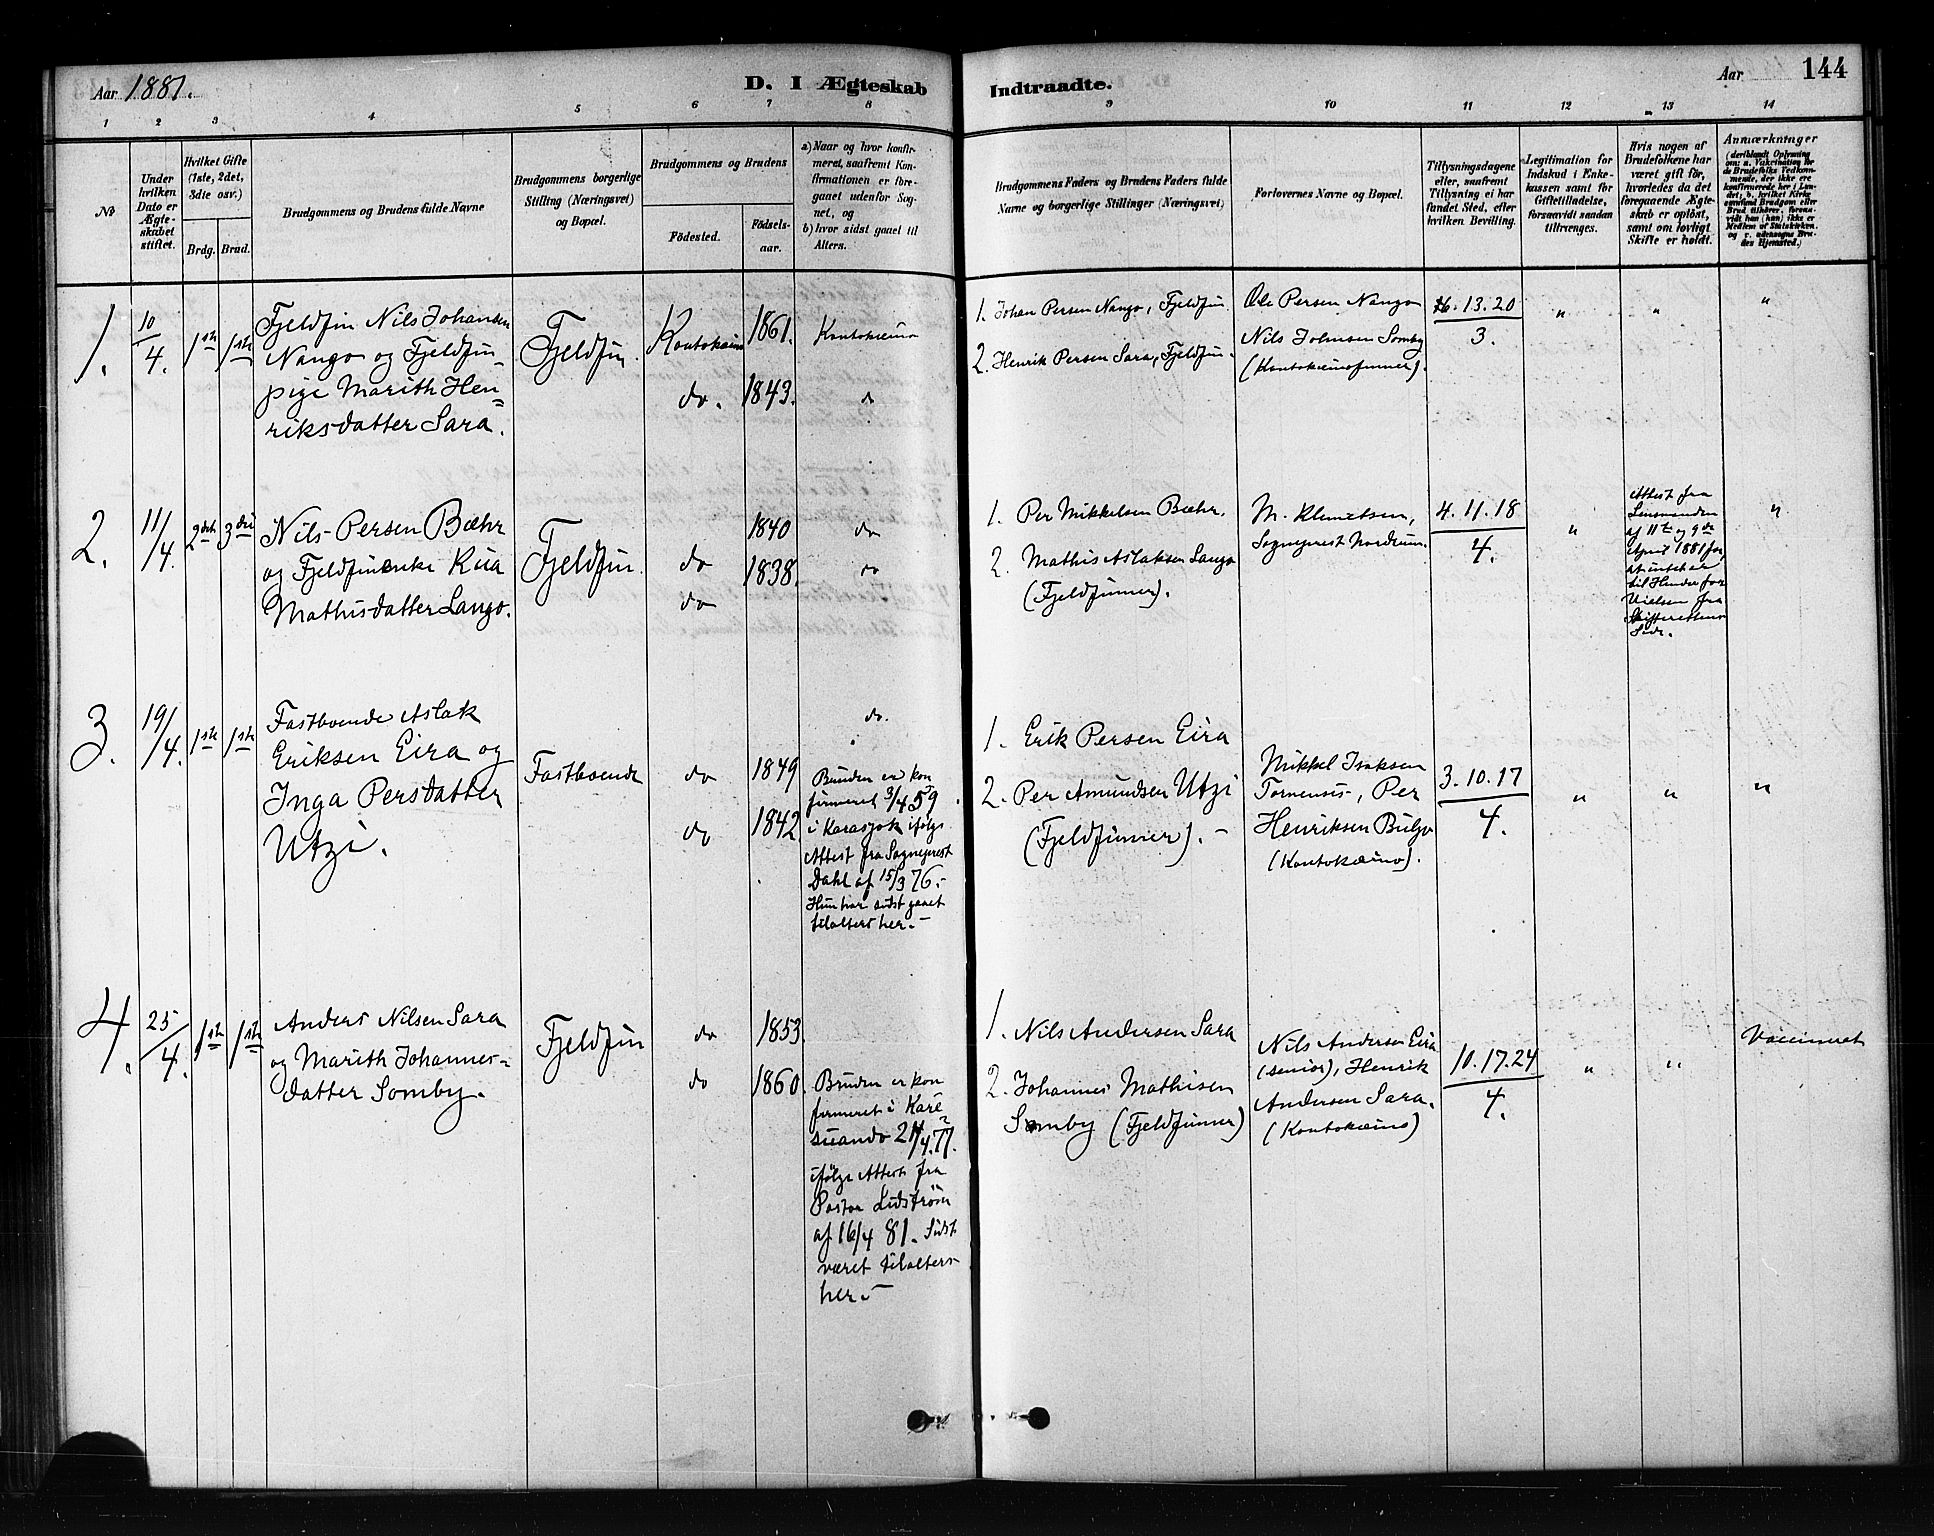 Aar 1881.
D. I Ægteskab
Indtraadte.
Aar
144
1
2
3
4
5
6
7
8
9
10
11
12
13
14
No
Under
hvilken
Dato er
Ægte-
skabet
stiftet.
Hvilket Gifte
(1ste, 2det,
3dte osv.)
Brdg.
Brud.
Brudgommens og Brudens fulde Navne
Brudgommens borgerlige
Stilling (Næringsvei)
og Bopæl.
Brudgommens og Brudens
Fødested.
Fødsels-
aar.
a) Naar og hvor konfir-
meret, saafremt Kon-
firmationen er fore-
gaaet udenfor Sog-
net, og
b) hvor sidst gaaet til
Alters.
Brudgommens Faders og Brudens Faders fulde
Navne og borgerlige Stillinger (Næringsvei)
Forlovernes Navne og Bopæl.
Tillysningsdagene
eller, saafremt
Tillysning ei har
fundet Sted, efter
hvilken Bevilling.
Legitimation for
Indskud i Enke-
kassen samt for
Giftetilladelse,
forsaavidt saadan
tiltrænges.
Hvis nogen af
Brudefolkene har
været gift før,
hvorledes da det
foregaaende Ægte-
skab er opløst,
samt om lovligt
Skifte er holdt.
Anmærkninger
(deriblandt Oplysning
om: a. Vakcination for
de Brudefolks Vedkom-
mende, der ikke ere
konfirmerede her i Lan-
det; b. hvilket Kirke-
samfund Brudgom eller
Brud tilhører, forsaa-
vidt han (hun) ikke er
Medlem af Statskirken,
og c. udensogns Bru-
des Hjemsted.)
1.
10/4.
1ste
1ste
Fjeldfin Nils Johansen
Nango og Fjeldfin-
pige Marith Hen-
riksdatter Sara.
Fjeldfin.
Koutokeino
do.
1861.
1843.
Koutokeino
do
1. Johan Persen Nango, Fjeldfin
2. Henrik Persen Sara, Fjeldfin.
Ole Persen Nango
Nils Johnsen Somby
(Koutokeinofinner).
6. 13. 20
3.
"
"
"
2.
11/4.
2det
3die
Nils Persen Bæhr
og Fjeldfinenke Risa
Mathisdatter Lango.
Fjeldfin.
do
do
1840
1838.
do
do
1. Per Mikkelsen Bæhr.
2. Mathis Aslaksen Lango
(Fjeldfinner).
M. Klemetsen,
Sogneprest Nordrum.
4. 11. 18
4.
"
Attest fra
Lensmanden
af 11te og 9de
April 1881 for
at intet er
til Hinder for
Vielsen fra
Skifterettens
Side.
"
3.
19/4.
1ste
1ste
Fastboende Aslak
Eriksen Eira og
Inga Persdatter
Utzi.
Fastboende
do
do
1849
1842
do.
Bruden er kon
firmeret 3/4 59
i Karasjok ifølge
Attest fra Sogneprest
Dahl af 15/3 76.-
Hun har sidst gaaet
tilalters her.-
1. Erik Persen Eira
2. Per Amundsen Utzi
(Fjeldfinner).-
Mikkel Isaksen
Tornensis, Per
Henriksen Buljo
(Koutokæino).
3. 10. 17
4.
"
"
"
4.
25/4.
1ste
1ste
Anders Nilsen Sara
og Marith Johannes-
datter Somby.
Fjeldfin
do
do
1853.
1860.
Bruden er kon
firmeret i Kare
suando 24/4 77.
ifølge Attest fra
Pastor Lidström
af 16/4 81. Sidst
været tilalters
her.-
1. Nils Andersen Sara
2. Johannes Mathisen
Somby (Fjeldfinner)
Nils Andersen Eira
(senior), Henrik
Andersen Sara.
(Koutokæino)
10. 17. 24
4.
"
"
Vaccineret